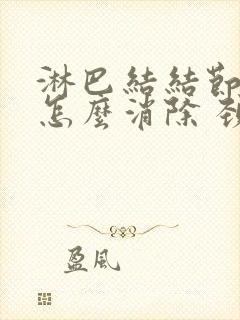 淋巴結結節
怎麼消除
盈風